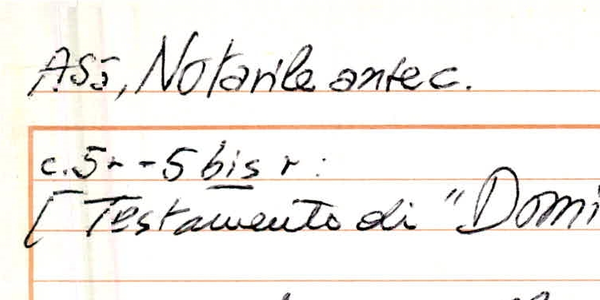 ASS, Notarile antec.
c. 5r - 5 bis r:
[Testamento di "Domi